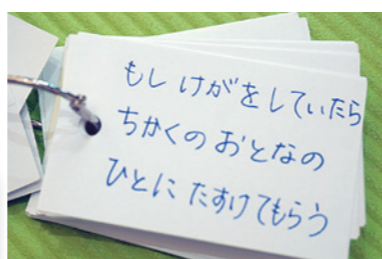 もし けがをしていたら
ちかくの おとなの
ひとに たすけてもらう